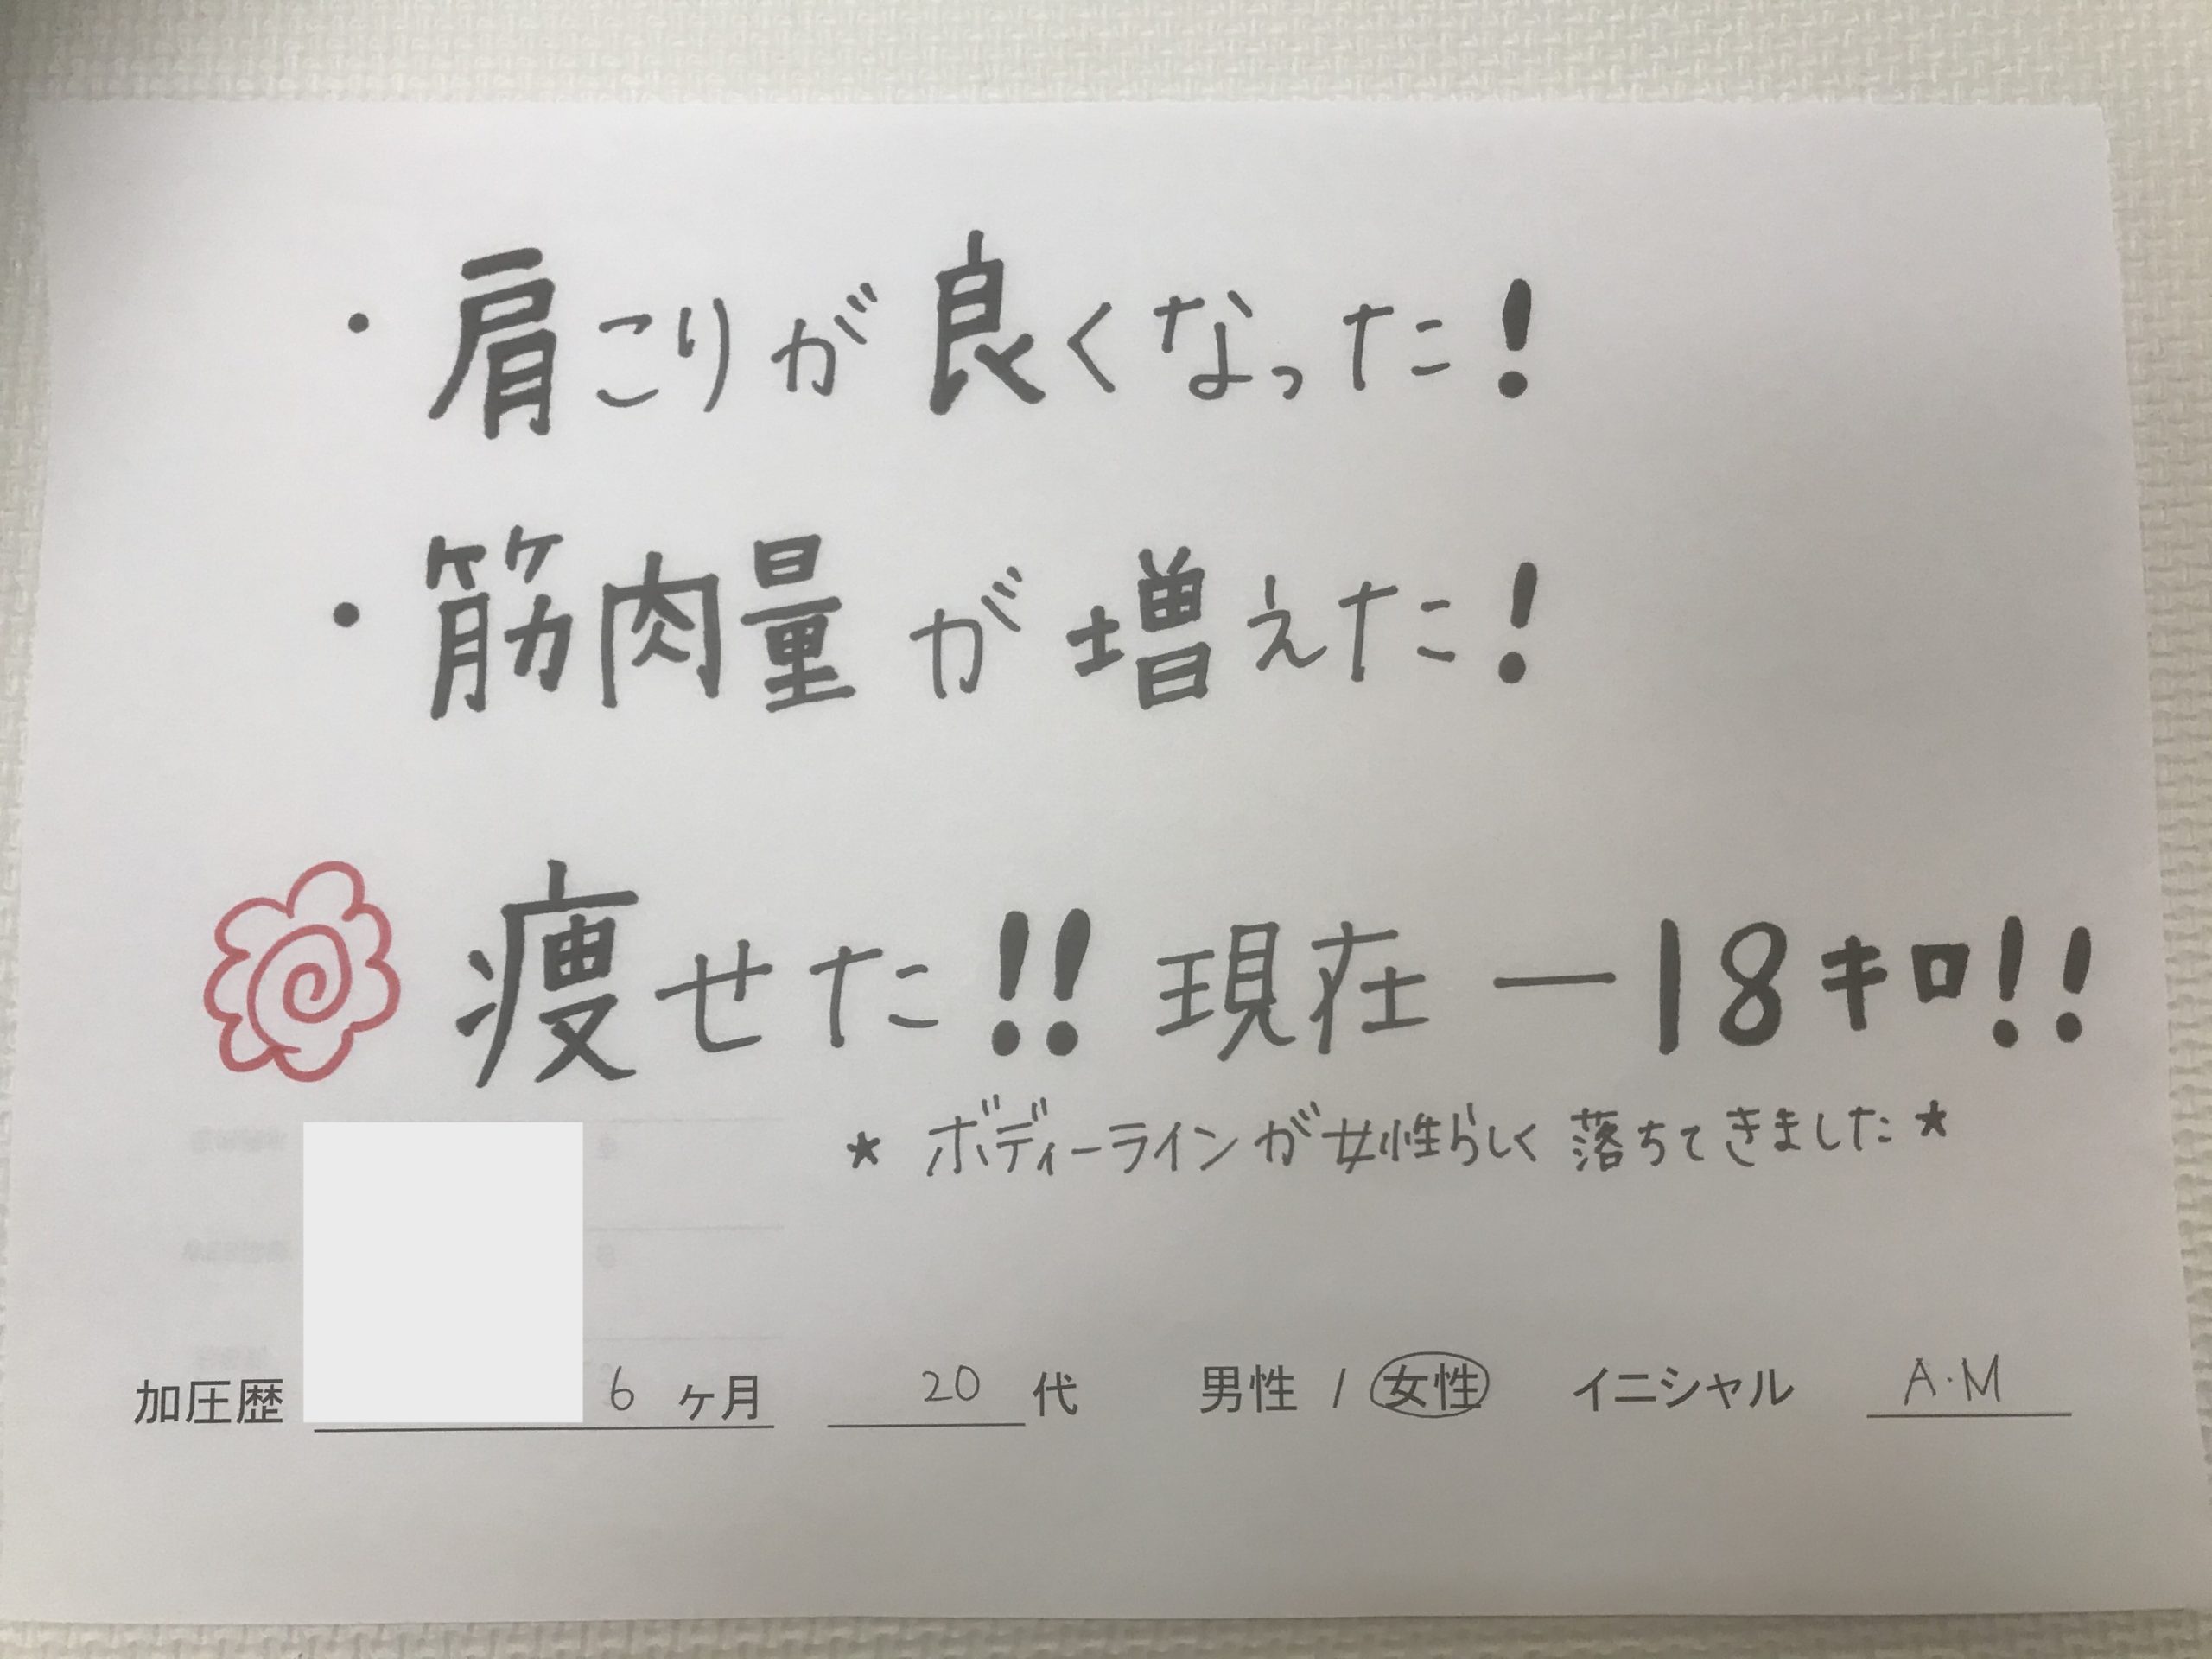 ・肩こりが良くなった!
・筋肉量が増えた!
痩せた!! 現在 ー18キロ!!
★ ボディーラインが女性らしく落ちてきました★
加圧歴 6 ヶ月 20 代 男性 / 女性 イニシャル A・M